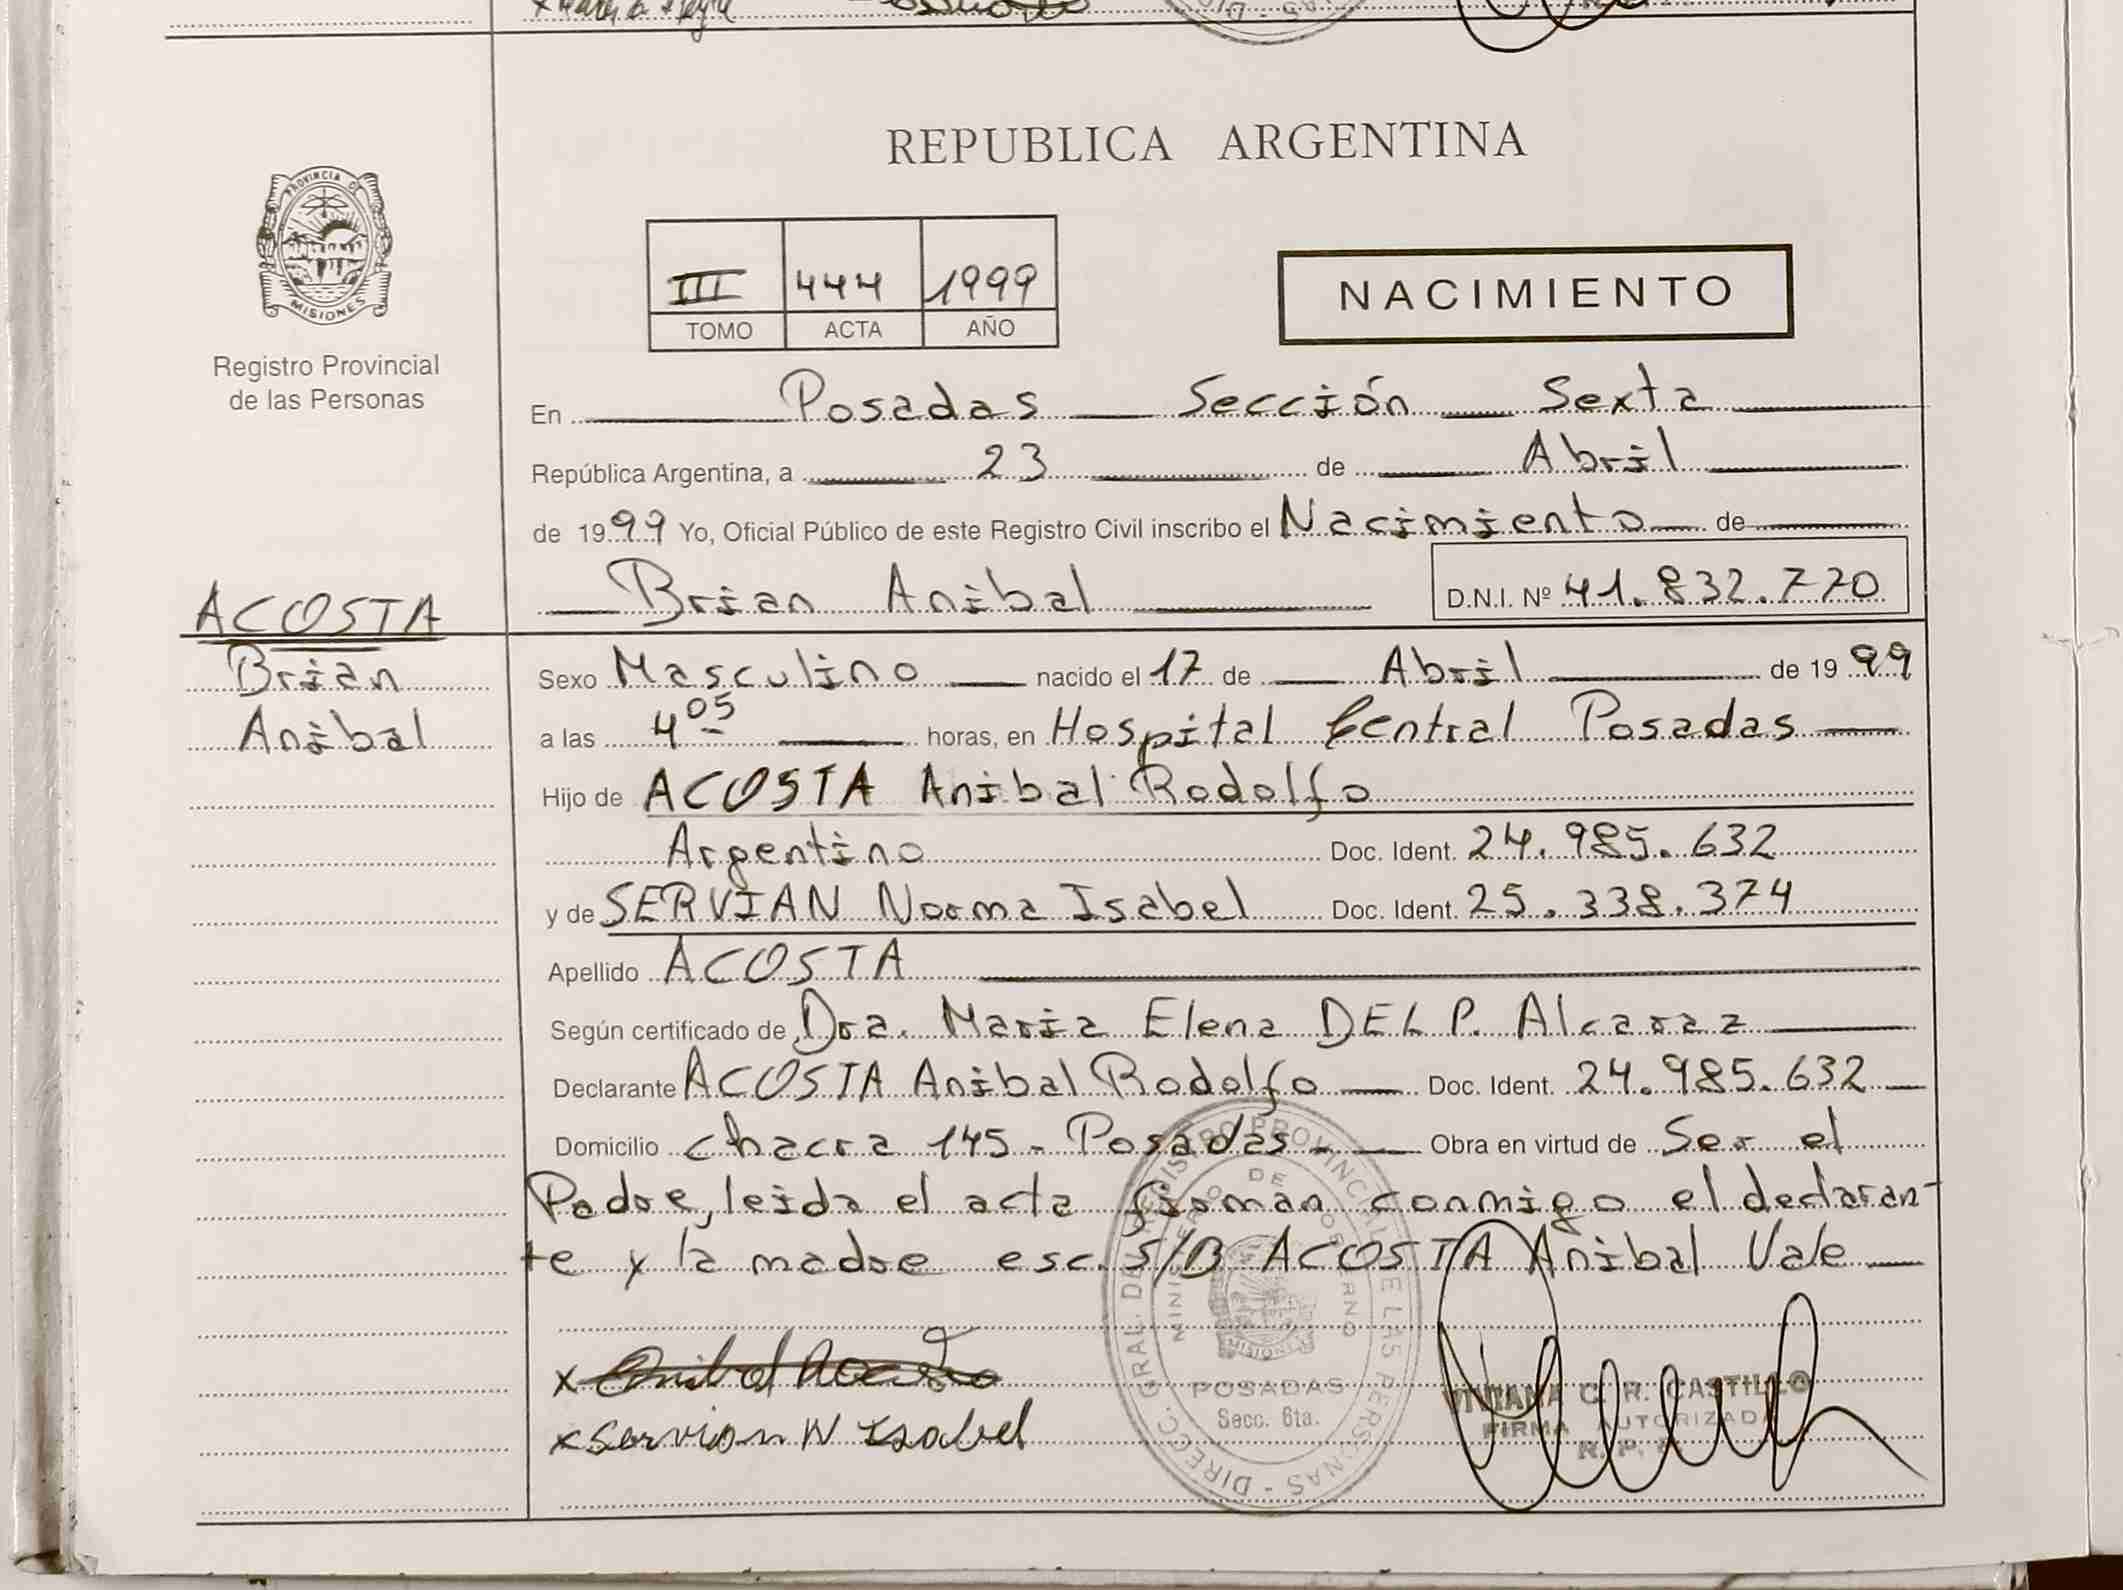 REPUBLICA ARGENTINA
PROVINCIA DE
MISIONES
Registro Provincial
de las Personas
III 444 1999
TOMO ACTA AÑO
NACIMIENTO
En Posadas Sección Sexta
República Argentina, a 23 de Abril
de 1999 Yo, Oficial Público de este Registro Civil inscribo el Nacimiento de
Brian Anibal D.N.I. Nº 41.832.770
ACOSTA
Brian
Anibal
Sexo Masculino nacido el 17 de Abril de 1999
a las 4 05 horas, en Hospital Central Posadas
Hijo de ACOSTA Anibal Rodolfo
Argentino Doc. Ident. 24.985.632
y de SERVIAN Norma Isabel Doc. Ident. 25.338.374
Apellido ACOSTA
Según certificado de Dra. Maria Elena DEL P. Alcaraz
Declarante ACOSTA Anibal Rodolfo Doc. Ident. 24.985.632
Domicilio chacra 145 - Posadas - Obra en virtud de Ser el
Padre, leida el acta firman conmigo el declaran-
te y la madre esc. S/B ACOSTA Anibal Vale
x Anibal Acosta
x Servian N Isabel
DIRECC. GRAL. DEL REGISTRO PROVINCIAL DE LAS PERSONAS
MINISTERIO DE GOBIERNO
MISIONES
POSADAS
Secc. 6ta.
VIVIANA C. R. CASTILLO
FIRMA AUTORIZADA
R. P.